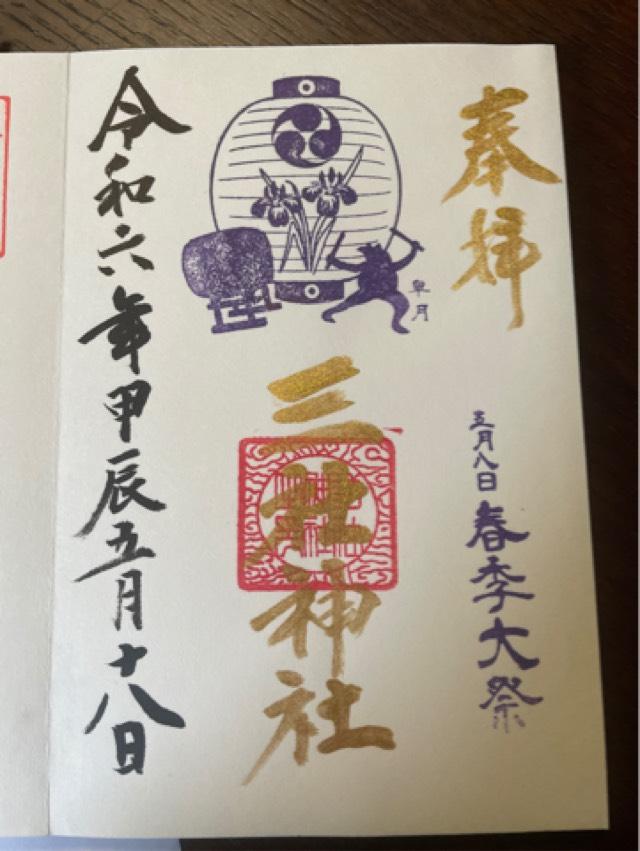 奉拝
五月八日 春季大祭
皐月
三社神社
令和六年甲辰五月十八日